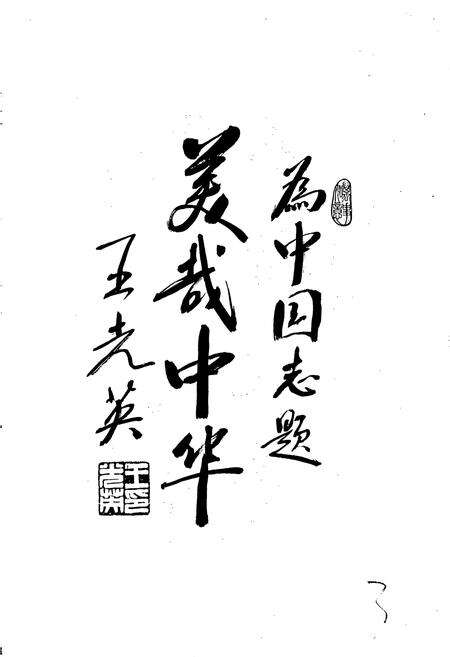 為中国志题
美哉中华
王光英
王光英印